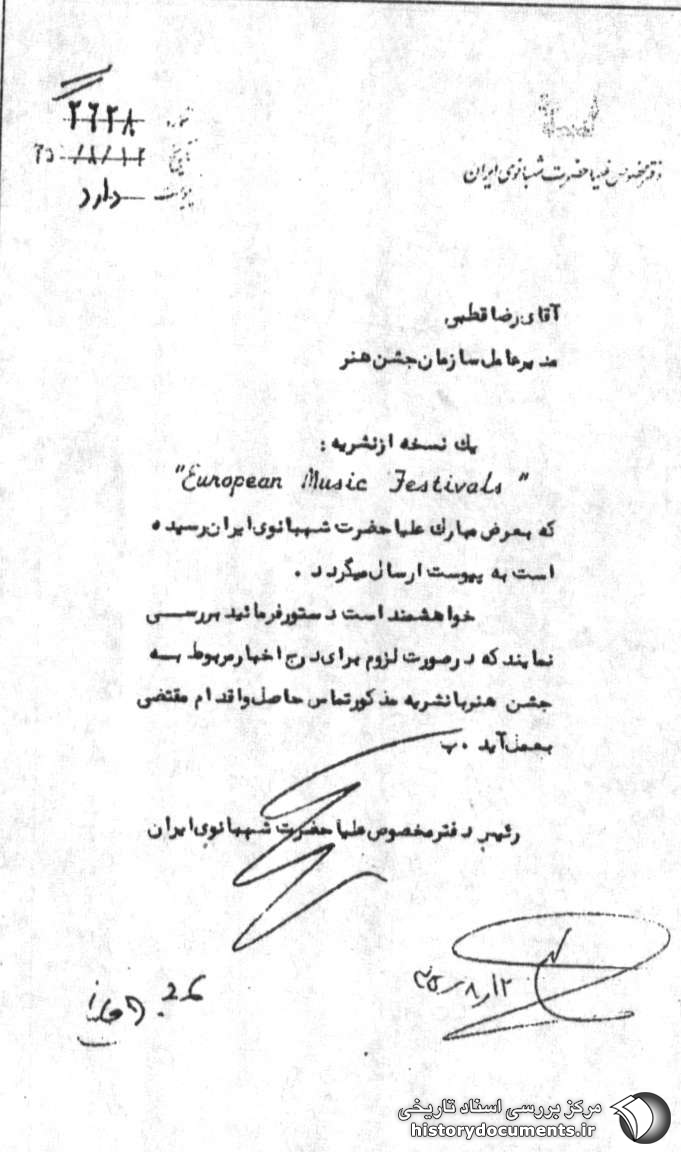 دفتر مخصوص علیاحضرت شهبانوی ایران
شماره ۲۶۲۸
تاریخ ۳۵/۸/۱۲
پیوست دارد
آقای رضا قطبی
مدیرعامل سازمان جشن هنر
یك نسخه از نشریه :
"European Music Festivals"
که بعرض مبارك علیا حضرت شهبانوی ایران رسیده
است به پیوست ارسال میگردد .
خواهشمند است دستور فرمائید بررسی
نمایند که در صورت لزوم برای درج اخبار مربوط به
جشن هنر با نشریه مذکور تماس حاصل و اقدام مقتضی
بعمل آید . پ
رئیس دفتر مخصوص علیا حضرت شهبانوی ایران
مرکز بررسی اسناد تاریخی
historydocuments.ir